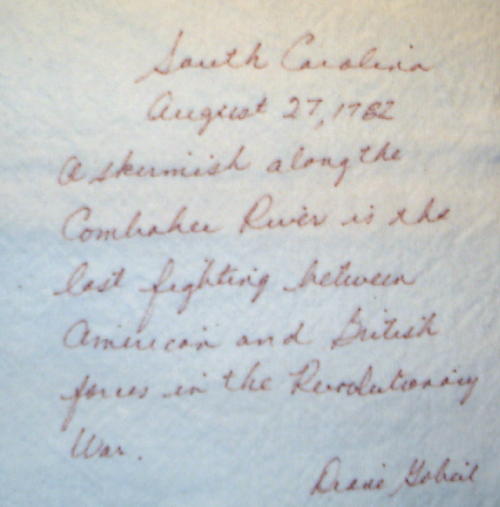 South Carolina
August 27, 1782
A skermish along the
Combahee River is the
last fighting between
American and British
forces in the Revolutionary
War.
Diane Gobeil